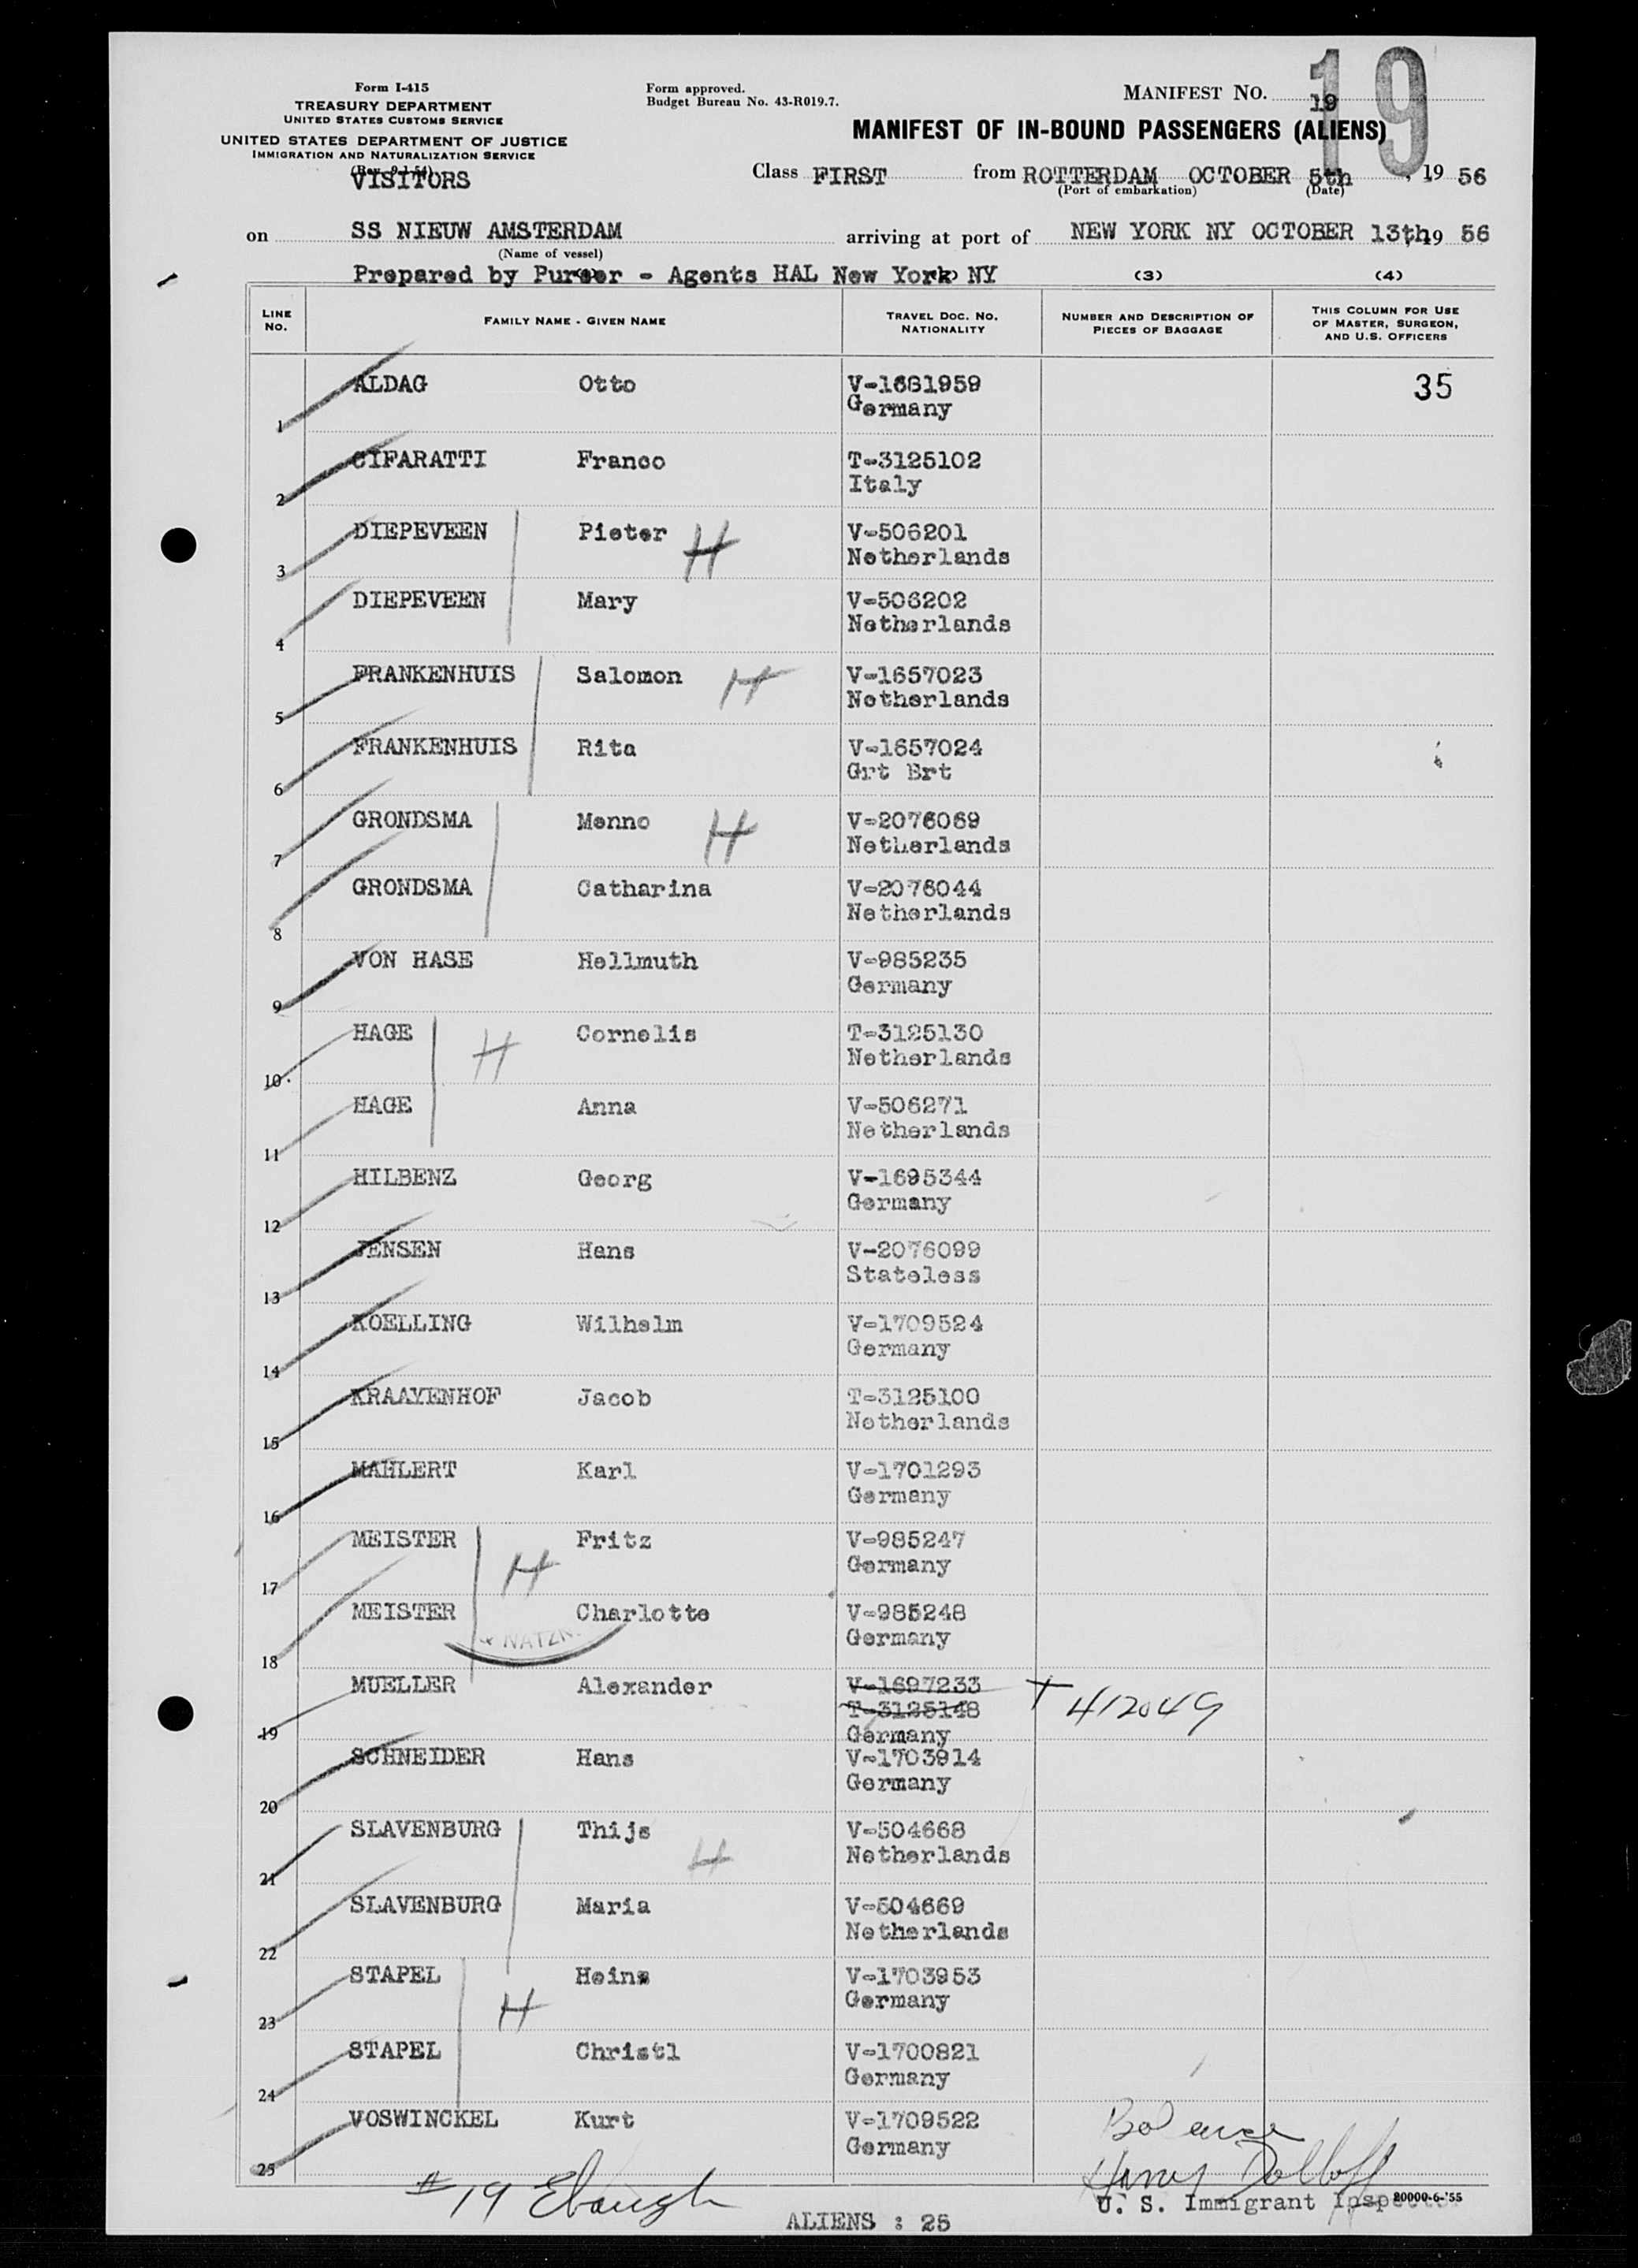 Form I-415
TREASURY DEPARTMENT
UNITED STATES CUSTOMS SERVICE
UNITED STATES DEPARTMENT OF JUSTICE
IMMIGRATION AND NATURALIZATION SERVICE
VISITORS
Form approved.
Budget Bureau No. 43-R019.7.
19
MANIFEST NO. 19
MANIFEST OF IN-BOUND PASSENGERS (ALIENS)
Class FIRST from ROTTERDAM OCTOBER 5th, 19 56
(Port of embarkation) (Date)
on SS NIEUW AMSTERDAM arriving at port of NEW YORK NY OCTOBER 13th 19 56
(Name of vessel)
Prepared by Purser - Agents HAL New York NY (3) (4)
LINE NO. FAMILY NAME - GIVEN NAME TRAVEL DOC. NO. NATIONALITY NUMBER AND DESCRIPTION OF PIECES OF BAGGAGE THIS COLUMN FOR USE OF MASTER, SURGEON, AND U.S. OFFICERS
1 ALDAG Otto V-1681959 35
Germany
2 CIFARATTI Franco T-3125102
Italy
3 DIEPEVEEN Pieter H V-506201
Netherlands
4 DIEPEVEEN Mary V-506202
Netherlands
5 FRANKENHUIS Salomon H V-1657023
Netherlands
6 FRANKENHUIS Rita V-1657024
Grt Brt
7 GRONDSMA Menno H V-2076069
Netherlands
8 GRONDSMA Catharina V-2076044
Netherlands
9 VON HASE Hellmuth V-985235
Germany
10 HAGE H Cornelis T-3125130
Netherlands
11 HAGE Anna V-506271
Netherlands
12 HILBENZ Georg V-1695344
Germany
13 JENSEN Hans V-2076099
Stateless
14 KOELLING Wilhelm V-1709524
Germany
15 KRAAYENHOF Jacob T-3125100
Netherlands
16 MAHLERT Karl V-1701293
Germany
17 MEISTER H Fritz V-985247
Germany
18 MEISTER Charlotte V-985248
Germany
19 MUELLER Alexander V-1697233
T-3125148 T 412049
Germany
20 SCHNEIDER Hans V-1703914
Germany
21 SLAVENBURG Thijs H V-504668
Netherlands
22 SLAVENBURG Maria V-504669
Netherlands
23 STAPEL H Heinz V-1703953
Germany
24 STAPEL Christl V-1700821
Germany
25 VOSWINCKEL Kurt V-1709522
Germany
#19 Ebaugh
U. S. Immigrant 20000-6-'55
ALIENS : 25